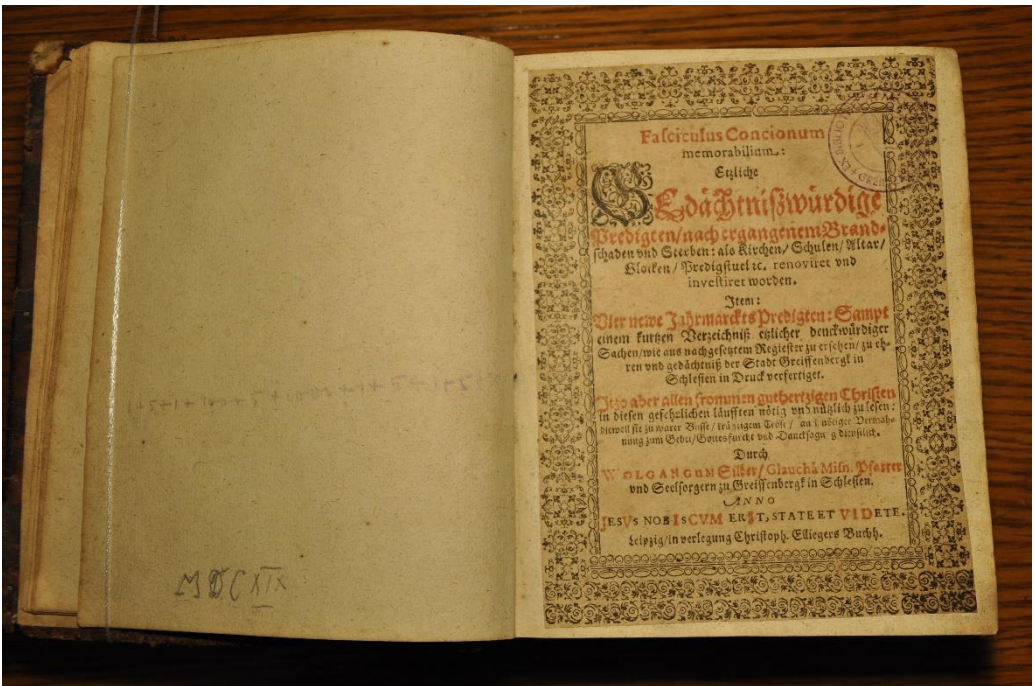 MDCXIX
Fasciculus Concionum
memorabilium:
Etzliche
GEdächtnißwürdige
Predigten/nach ergangenem Brand-
schaden vnd Sterben: als Kirchen/ Schulen/ Altar/
Glocken/ Predigstuel ꝛc. renoviret vnd
investiret worden.
Item:
Vier newe Jahrmarckts Predigten: Sampt
einem kurtzen Verzeichniß etzlicher denckwürdiger
Sachen/wie aus nachgesetztem Register zu ersehen/ zu eh-
ren vnd gedächtniß der Stadt Greiffenbergk in
Schlesien in Druck verfertiget.
Itzo aber allen frommen guthertzigen Christen
in diesen gefehrlichen läufften nötig vnd nützlich zu lesen:
dieweil sie zu warer Busse/ kräfftigem Trost/ auch nötiger Vermah-
nung zum Gebet/Gottesfurcht vnd Dancksagung dienstlich.
Durch
WOLGANGUM Silber/ Glauchâ Misn. Pfarrer
vnd Seelsorgern zu Greiffenbergk in Schlesien.
ANNO
JESVs NOBIsCVM ERIT, STATE ET VIDETE.
Leipzig/in verlegung Christoph. Elligers Buchh.